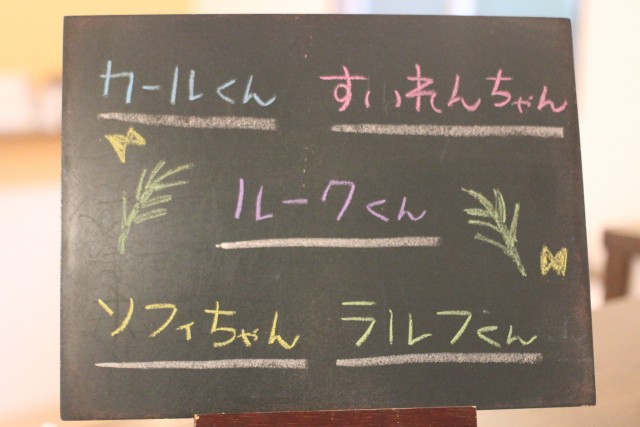 カールくん すいれんちゃん
ルークくん
ソフィちゃん ラルフくん